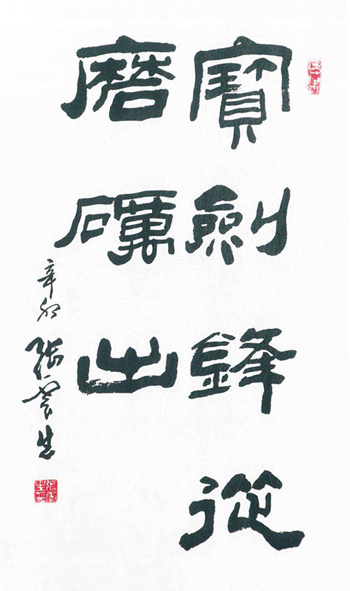 寶劍鋒從
磨礪出
辛卯 張